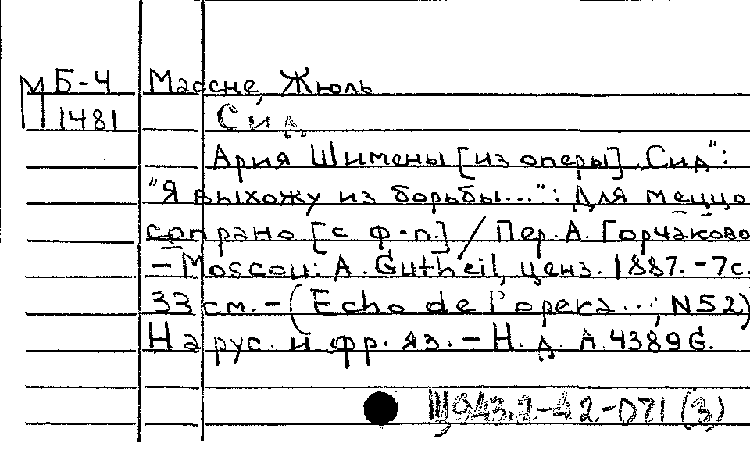 М Б-4 Массне, Жюль
1481 Сид
Ария Шимены [из оперы] „Сид":
"Я выхожу из борьбы...": Для меццо
сопрано [с ф-п.] / Пер. А. Горчаково
- Moscou: A. Gutheil, ценз. 1887. - 7с.
33 см. - (Echo de l'opera...; N52)
На рус. и фр. яз. - Н. д. А. 4389 G.
Щ943.2-42-071 (3)